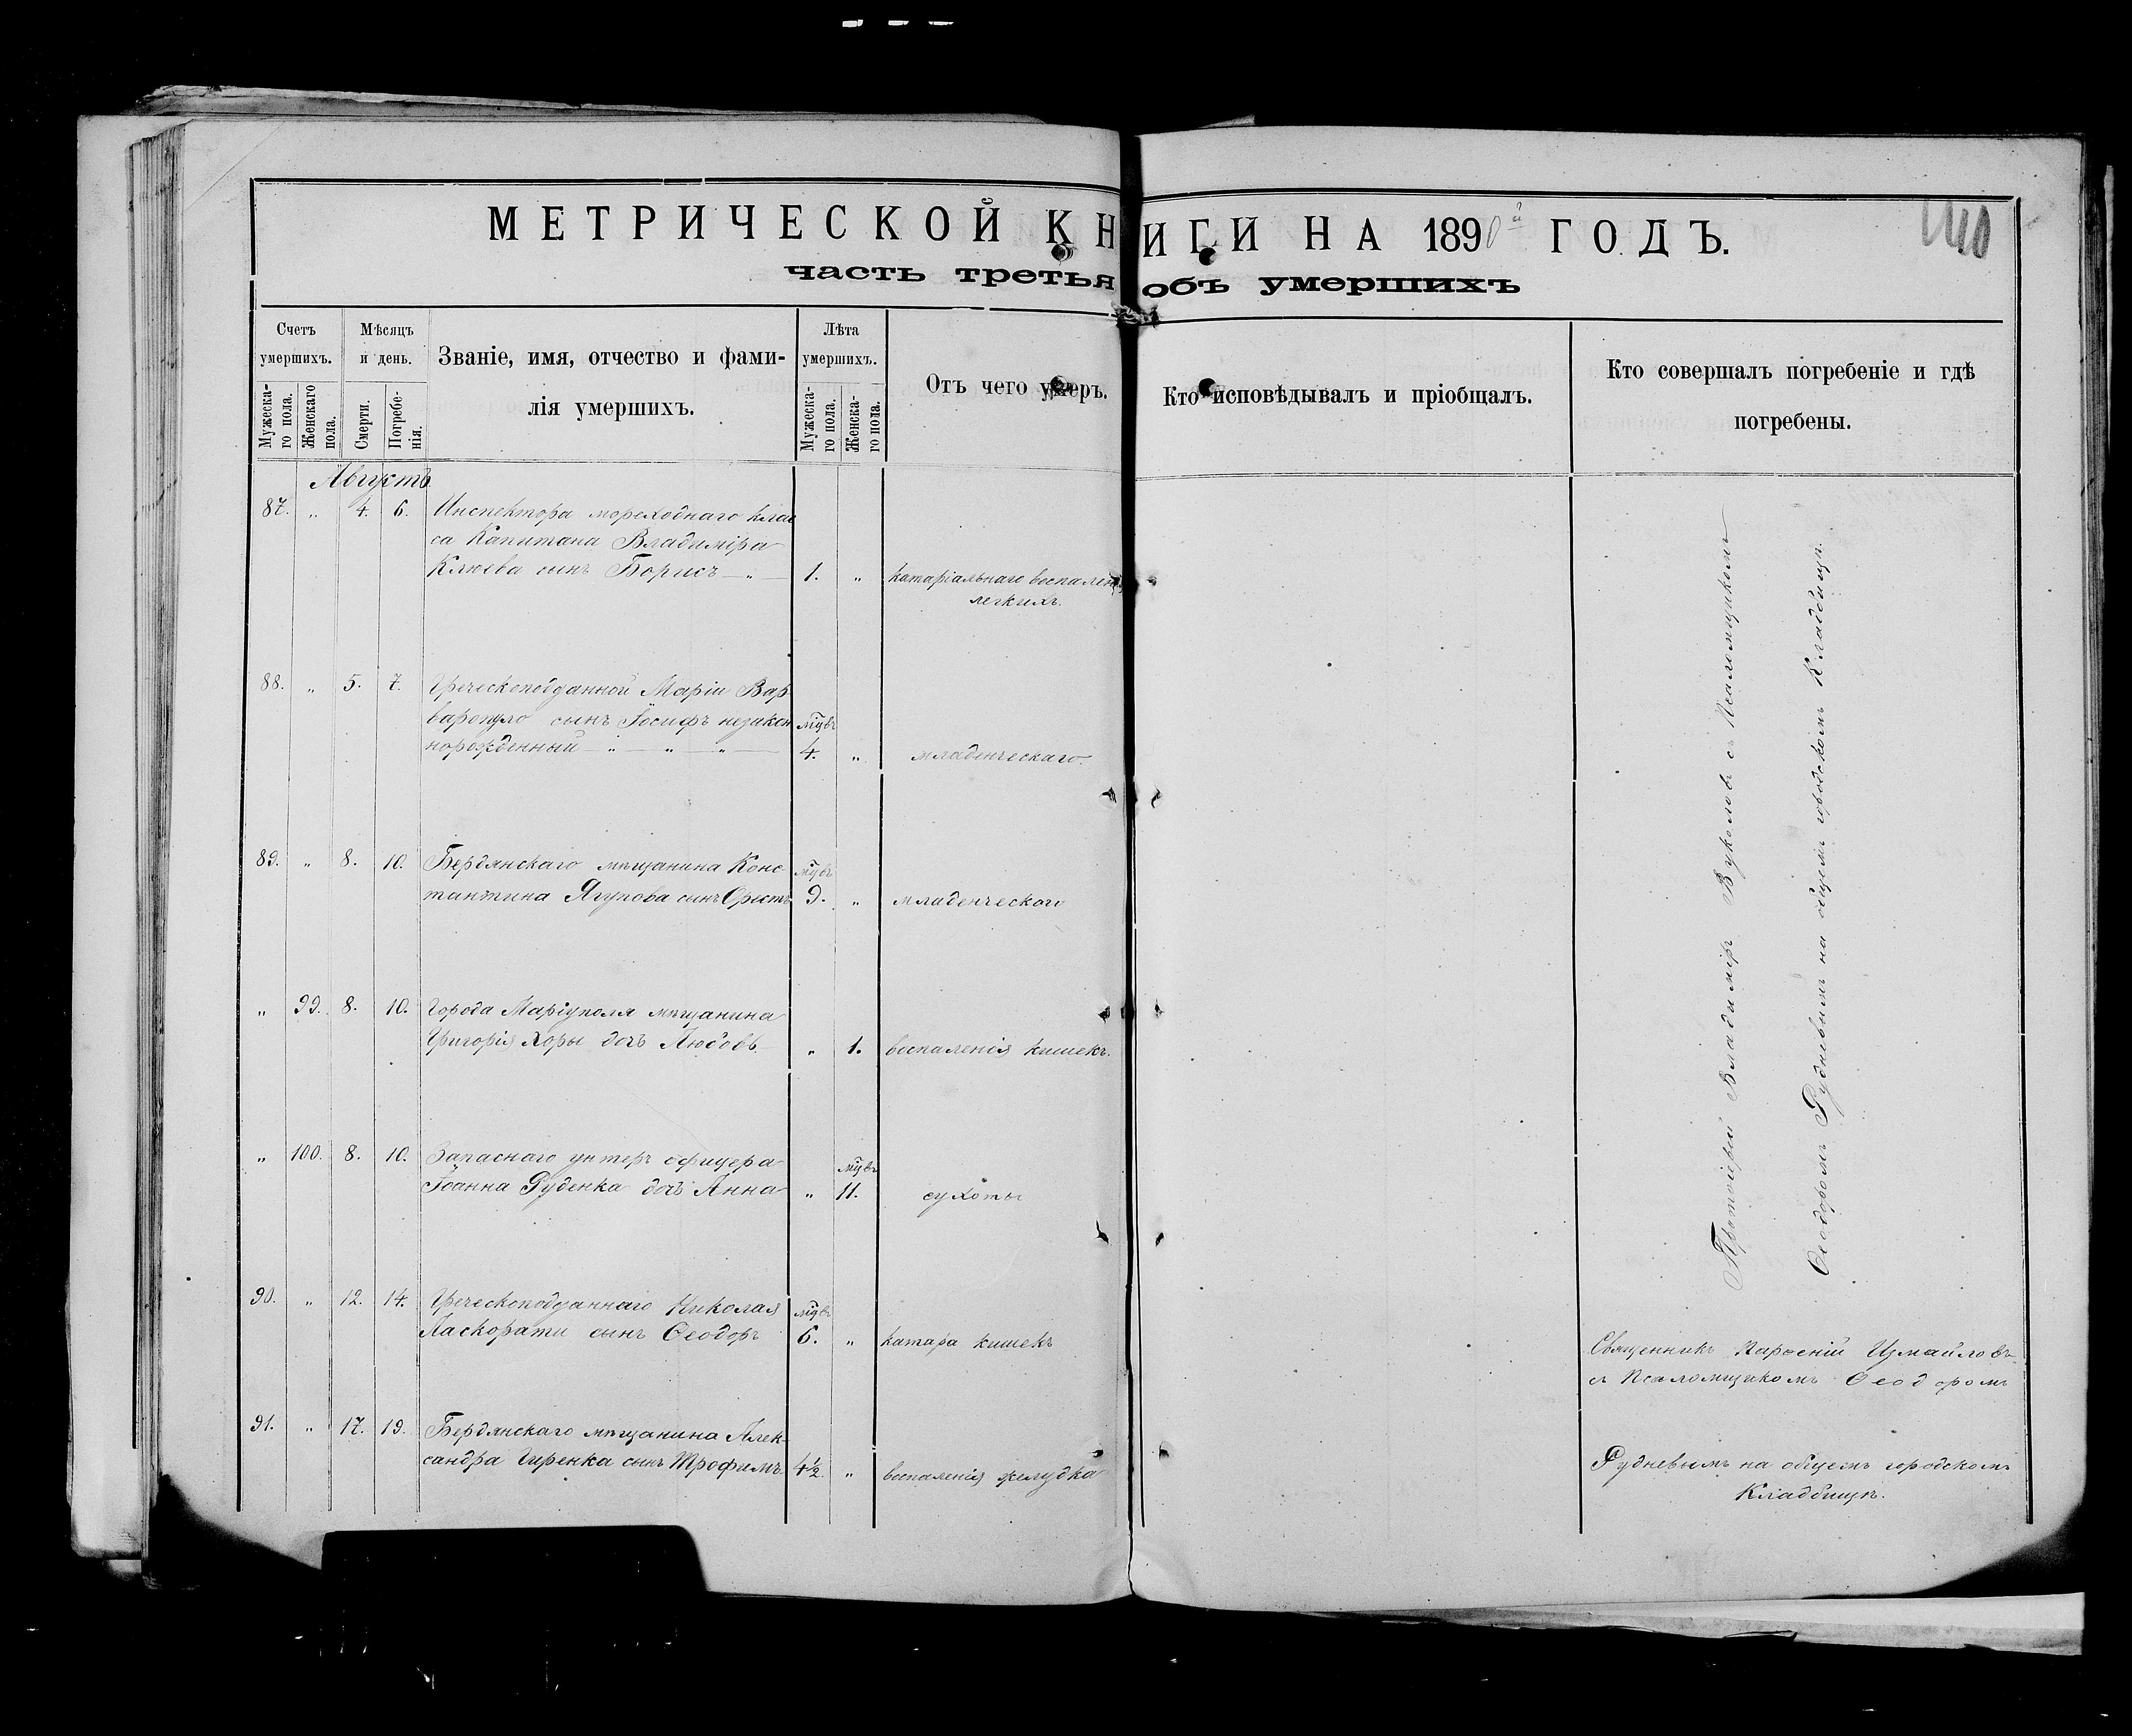 МЕТРИЧЕСКОЙ КНИГИ НА 1890й ГОДЪ.
часть третья объ умершихъ
Счетъ умершихъ.
Мужескаго пола.
Женскаго пола.
Мѣсяцъ и день.
Смерти.
Погребенія.
Званіе, имя, отчество и фами-
лія умершихъ.
Лѣта умершихъ.
Мужеска-
го пола.
Женска-
го пола.
Отъ чего умеръ.
Кто исповѣдывалъ и пріобщалъ.
Кто совершалъ погребеніе и гдѣ
погребены.
Августъ
87. „ 4. 6. Инспектора мореходнаго клас
са Капитана Владиміра
Клюева сынъ Борисъ — „ — 1. „ катаріальнаго воспален
легкихъ.
88. „ 5. 7. Греческоподданной Маріи Вар
варопуло сынъ Іосифъ незакон мцвъ
норожденный — „ — „ — „ — 4. „ младенческаго.
89. „ 8. 10. Бердянскаго мѣщанина Конс- мцвъ
тантина Ягупова сынъ Орестъ 9. „ младенческого
„ 99. 8. 10. Города Маріуполя мѣщанина
Григорія Хоры дочь Любовь „ 1. воспаленія кишекъ.
„ 100. 8. 10. Запаснаго унтеръ офицера мцвъ
Іоанна Руденка дочь Анна „ 11. сухоты
90. „ 12. 14. Греческоподданнаго Николая мцвъ
Ласкорати сынъ Ѳеодоръ 6. „ катара кишекъ
91. „ 17. 19. Бердянскаго мѣщанина Алек-
сандра Гиренка сынъ Трофимъ 4½. „ воспаленія желудка
Протоіерей Владиміръ Вуколовъ съ Псаломщикомъ
Ѳеодоромъ Рудневымъ на общемъ городскомъ Кладбищѣ.
Священникъ Парѳеній Измайловъ
съ Псаломщикомъ Ѳеодоромъ
Рудневымъ на общемъ городскомъ
Кладбищѣ.